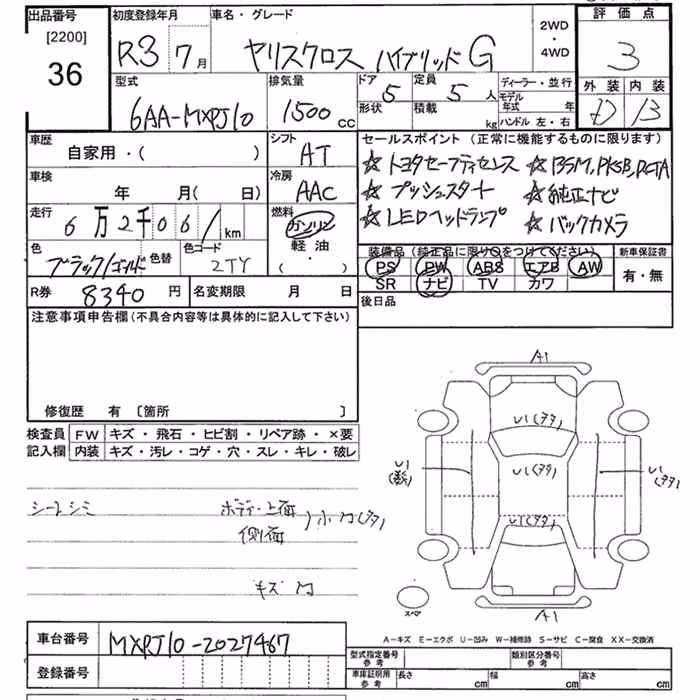 出品番号 初度登録年月 車名・グレード 2WD・4WD 評価点
[2200]
36
R3 7月 ヤリスクロス ハイブリッド G 3
型式 排気量 ドア 定員 ディーラー・並行 外装 内装
6AA-MXPJ10 1500cc 5 5人 モデル年式 年 D B
形状 積載 kg ハンドル 左・右
車歴 シフト セールスポイント (正常に機能するものに限ります)
自家用・( ) AT
☆トヨタセーフティセンス ☆BSM,PKSB,RCTA
車検 冷房
年 月(日) AAC
☆プッシュスタート ☆純正ナビ
走行 燃料
6万2千061km ガソリン
☆LEDヘッドランプ ☆バックカメラ
軽油
( ・ )
色 色替 色コード
ブラック/ゴールド 2TY
装備品 (純正品に限り○をつけてください) 新車保証書
PS PW ABS エアB AW 有・無
SR ナビ TV カワ
R券 8340円 名変期限 月 日
後日品
注意事項申告欄 (不具合内容等は具体的に記入して下さい)
修復歴 有 〔箇所 〕
検査員 FW キズ・飛石・ヒビ割・リペア跡・×要
記入欄 内装 キズ・汚レ・コゲ・穴・スレ・キレ・破レ
シートシミ ボディ・上面
側面
小凹(タタ)
キズ 凹
A1
U1(タタ)
U1
U1(タタ)
U1(タタ)
U1(タタ)
スペア
A1
A-キズ E-エクボ U-凹み W-補修跡 S-サビ C-腐食 XX-交換済
車台番号 MXPJ10-2027467
型式指定番号 参考 類別区分番号 参考
登録番号
車庫証明用 参考 長さ cm 幅 cm 高さ cm